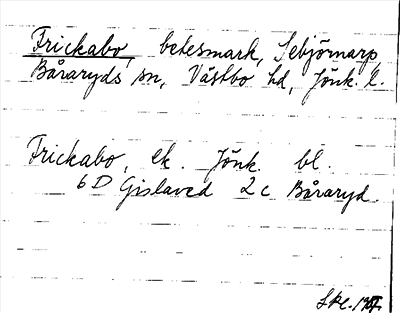 Frickabo, betesmark, Sebjörnarp,
Båraryds sn, Västbo hd, Jönk. l.
Frickabo, ek. Jönk. bl.
6D Gislaved 2c Båraryd.